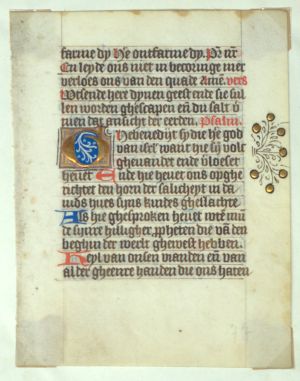 farme dy He ontfarme dy. Pr nr̄
En leyde ons niet in becoringe mer
verloes ons van den quade Amē. vers
Wtsende here dynen geest ende sie sul
len worden ghescapen eñ du salt v̄
nuen dat ansicht der eerden. Psalm
Ghebenedijt sy die he god
van isrl want hie sijn volc
ende v̄loeset
heuet Ende hie heuet ons opghe
richtet den horn der salicheyt in da
uids hues syns kindes
Als hie ghesproken heuet mits mū
de synre hilligher ppheten die vā den
beghin der werlt gheweest hebben.
Heyl van onsen vianden eñ van
al der gheenre handen die ons haten